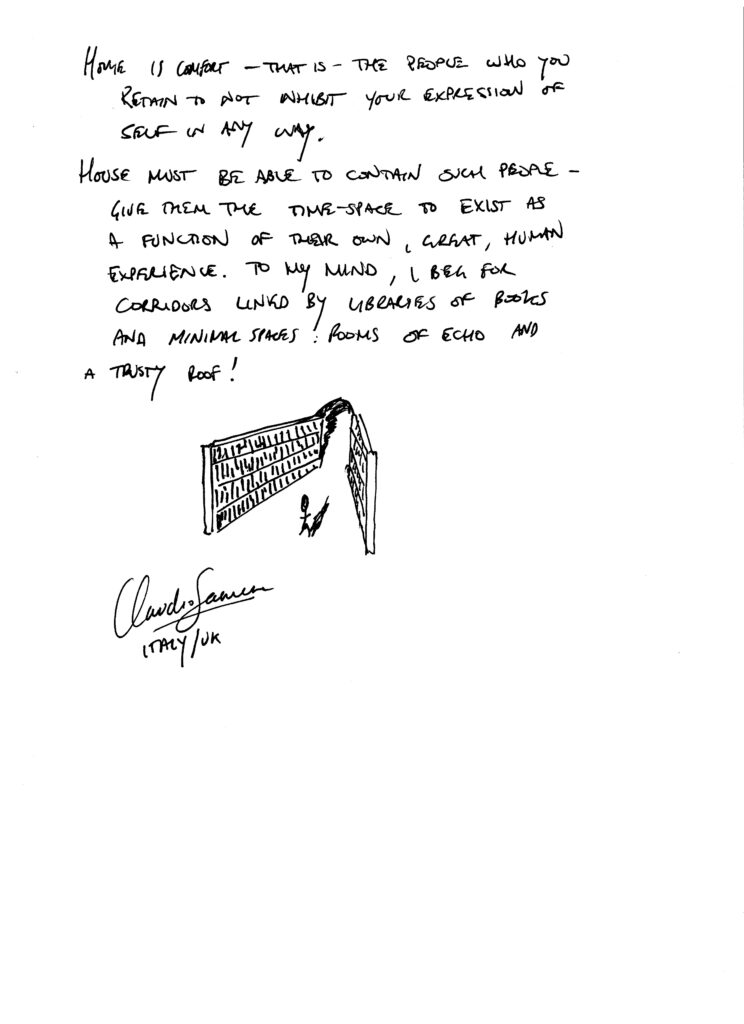 HOME IS COMFORT – THAT IS – THE PEOPLE WHO YOU
RETAIN TO NOT INHIBIT YOUR EXPRESSION OF
SELF IN ANY WAY.
HOUSE MUST BE ABLE TO CONTAIN SUCH PEOPLE –
GIVE THEM THE TIME-SPACE TO EXIST AS
A FUNCTION OF THEIR OWN, GREAT, HUMAN
EXPERIENCE. TO MY MIND, I BEG FOR
CORRIDORS LINKED BY LIBRARIES OF BOOKS
AND MINIMAL SPACES: ROOMS OF ECHO AND
A TRUSTY ROOF!
Claudio
ITALY/UK